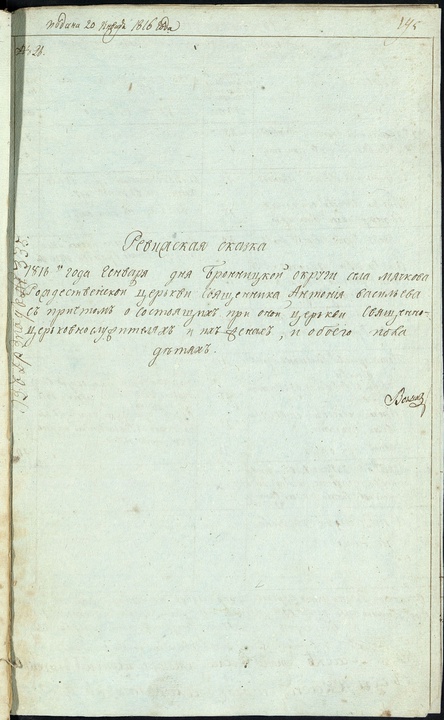 подана 20 1816 года
145
№ 21.
Ревизская сказка
1816 года Генваря дня Бронницкой округи села Мячкова
Рождественской церкви Священника Антонія Васильева
съ причтомъ о состоящихъ при оной церькви Священно-
церьковнослужителяхъ и ихъ женахъ, и обоего пола
дѣтяхъ.